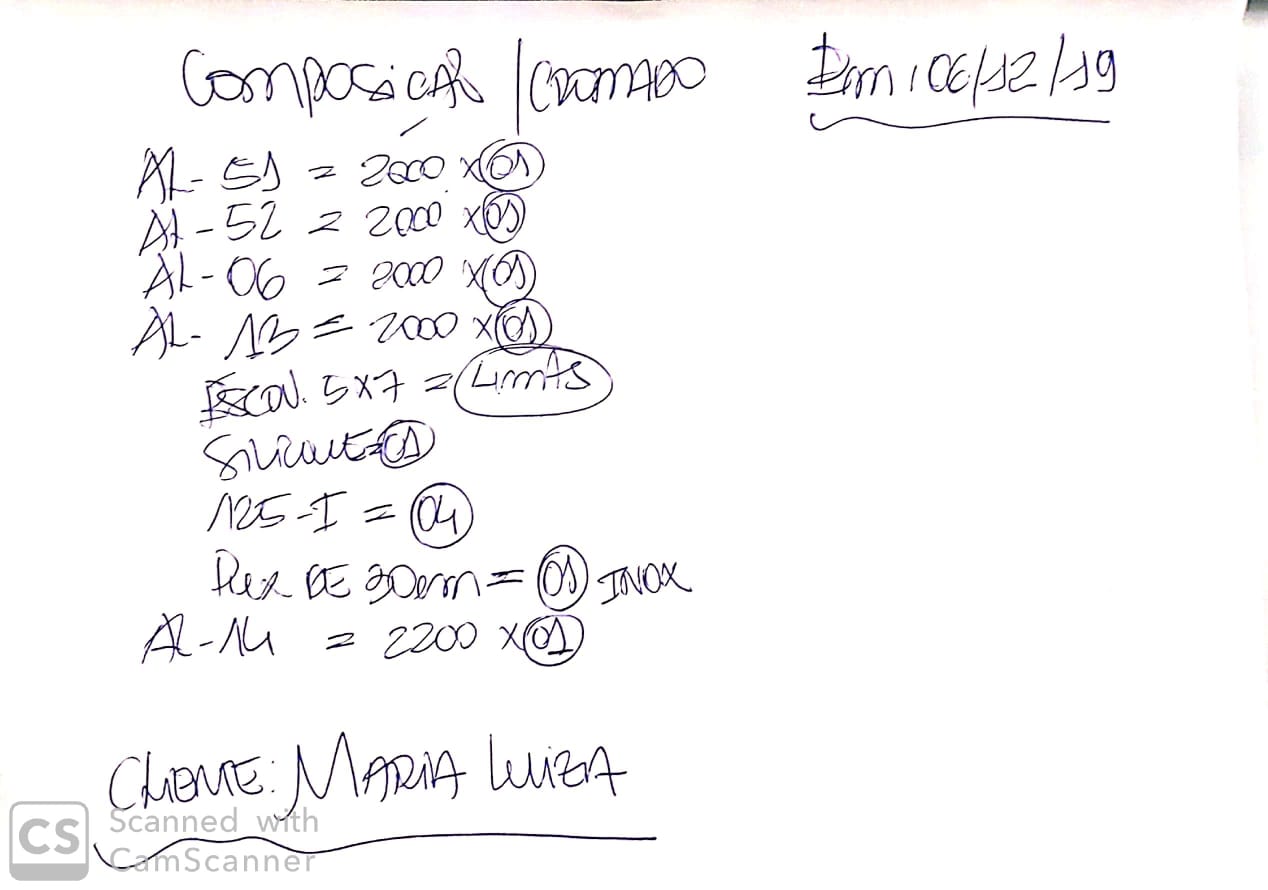 COMPOSIÇÃO / CROMADO Em: 06/12/19
AL-51 = 2000 x 01
AL-52 = 2000 x 01
AL-06 = 2000 x 01
AL-13 = 2000 x 01
ESCOV. 5x7 = 4 mts
SILICONE = 01
125-I = 04
DE 30cm = 01 INOX
AL-14 = 2200 x 01
CLIENTE: MARIA LUIZA
CS Scanned with
CamScanner